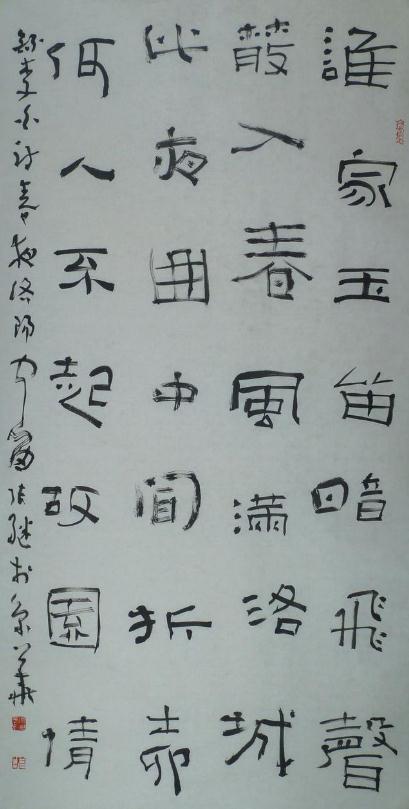 誰家玉笛暗飛聲
散入春風滿洛城
此夜曲中聞折柳
何人不起故園情
錄李白詩春夜洛陽聞笛張繼於京華